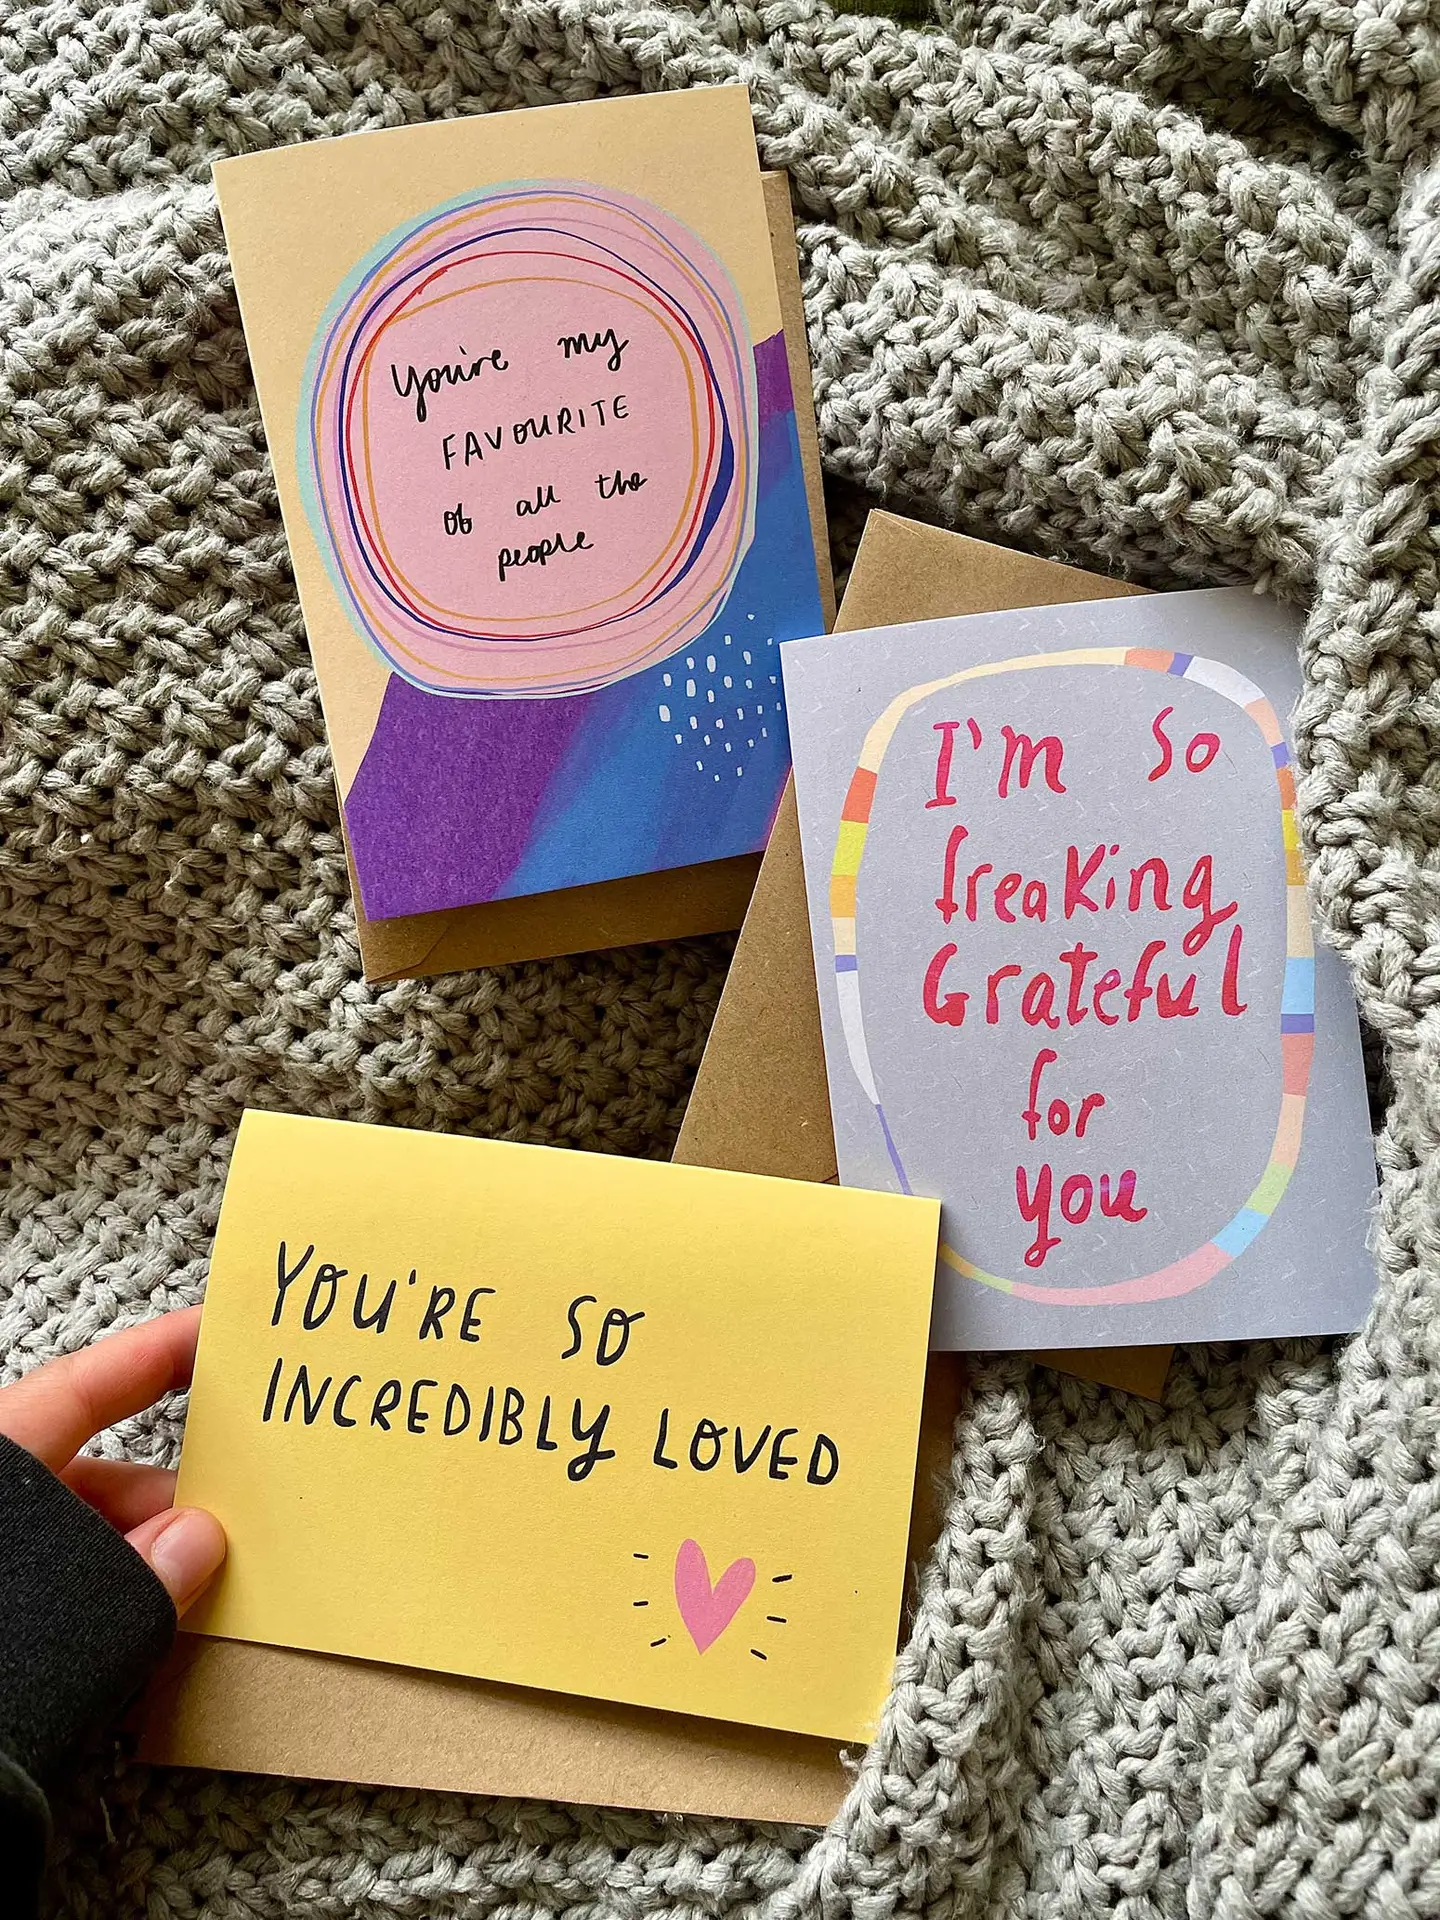 You're my
FAVOURITE
of all the
people
I'm so
freaking
Grateful
for
you
YOU'RE SO
INCREDIBLY LOVED